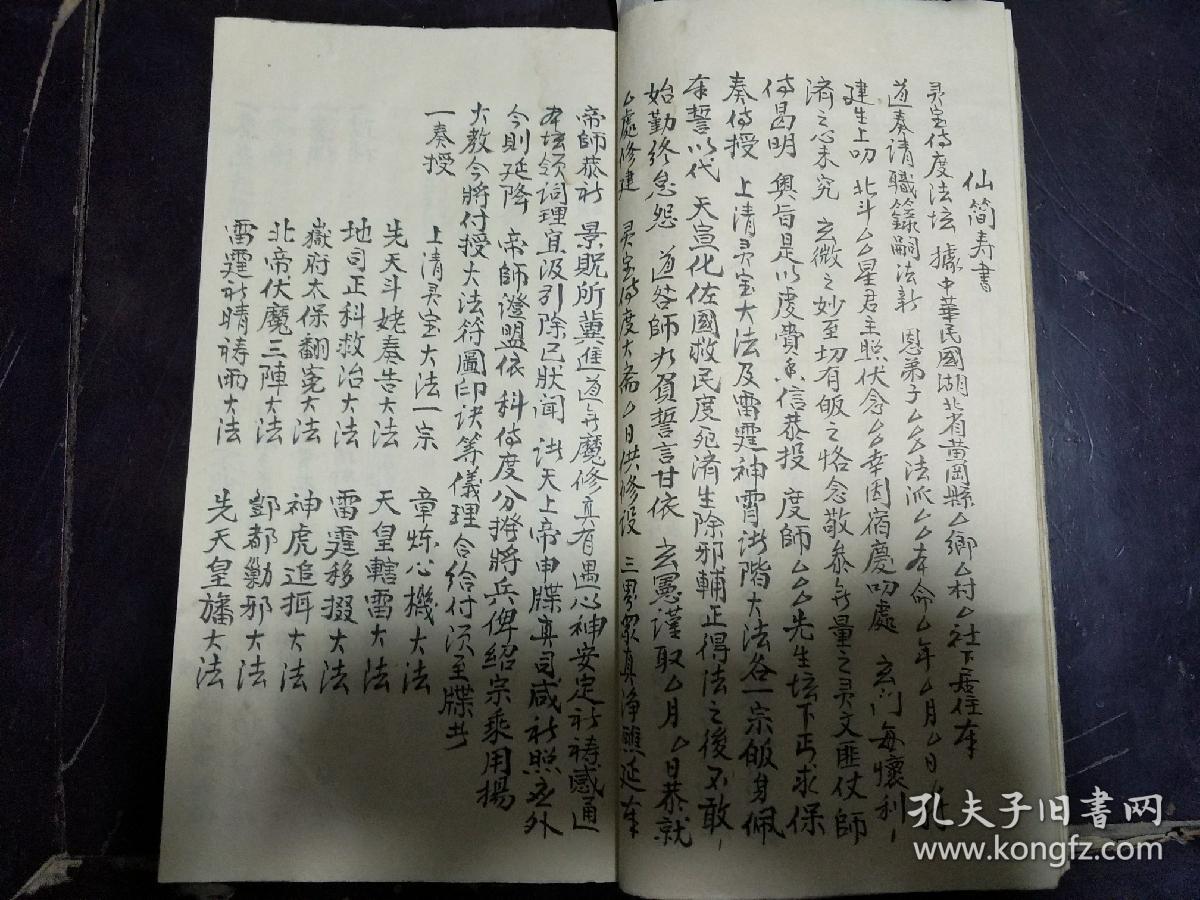 仙簡寿書
灵宝传度法坛 據中華民國湖北省黄岡縣厶鄉厶村厶社下居住奉
道奏请職籙嗣法新 恩弟子厶厶法派厶厶本命厶年厶月厶日
建生上叩 北斗厶厶星君主照伏念厶厶幸因宿慶叨處 玄门每懷利
済之心未究 玄微之妙至切有皈之恪念敬叅无量之灵文匪仗師
传曷明 奥旨是以虔賫信恭投 度師厶厶先生坛下丐求保
奏传授 上清灵宝大法及雷霆神霄諸階大法各一宗皈身佩
奉誓以代 天宣化佐國救民度死済生除邪輔正得法之後不敢
始勤终怠怨 道咎師如負誓言甘依 玄憲謹取厶月厶日恭就
厶處修建 灵宝传度大斋厶日供修设 三界眾真净醮延奉
帝師恭祈 景貺所冀進道无魔修真有遇心神安定祈祷感通
本坛领词理宜汲引除已狀闻 諸天上帝申牒真司咸祈照应外
今則延降 帝師澄盟依科传度分撥將兵俾紹宗乘用揚
大教今將付授大法符圖印诀等儀理合给付须至牒者
一奏授 上清灵宝大法一宗 章炼心機大法
先天斗姥奏告大法 天皇轄雷大法
地司正科救治大法 雷霆移掇大法
嶽府太保翻寃大法 神虎追攝大法
北帝伏魔三陣大法 酆都勦邪大法
雷霆祈晴祷雨大法 先天皇旛大法
孔夫子旧书网
www.kongfz.com